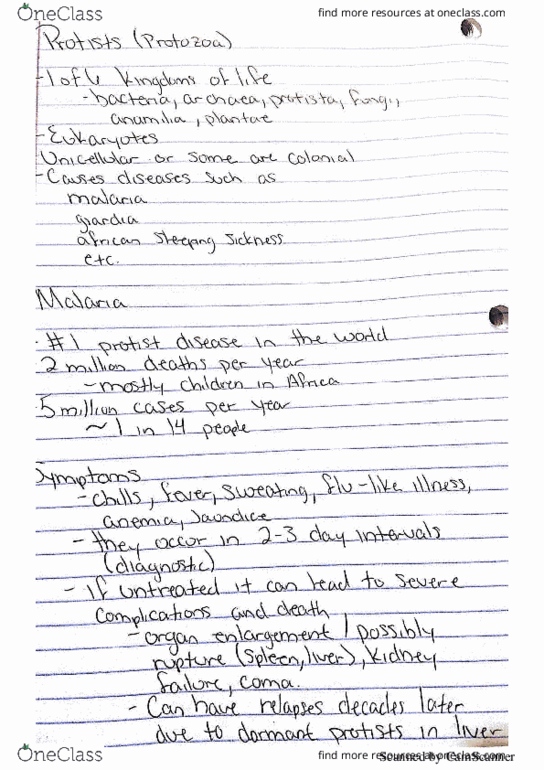 OneClass
find more resources at oneclass.com
Protists (Protozoa)
-1 of 6 kingdoms of life
-bacteria, archaea, protista, fungi,
animilia, plantae
-Eukaryotes
Unicellular or some are colonial
-Causes diseases such as
malaria
giardia
african sleeping sickness
etc.
Malaria
·#1 protist disease in the world
2 million deaths per year
-mostly children in Africa
5 million cases per year
~1 in 14 people
Symptoms
-chills, fever, sweating, flu-like illness,
anemia, Jaundice
- they occur in 2-3 day intervals
(diagnostic)
- if untreated it can lead to severe
complications and death
-organ enlargement / possibly
rupture (spleen, liver), kidney
failure, coma.
- Can have relapses decades later
due to dormant protists in liver
OneClass
find more resources at oneclass.com
Scanned by CamScanner